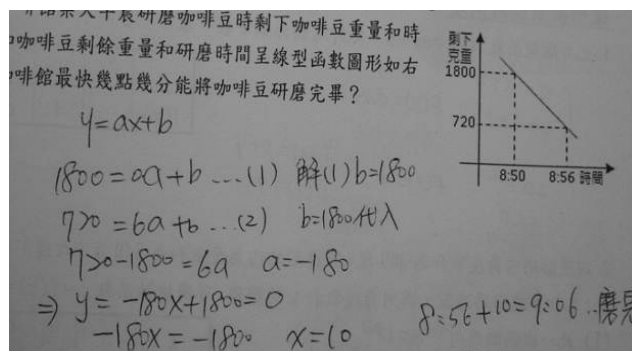 咖啡館某天早晨研磨咖啡豆時剩下咖啡豆重量和時
咖啡豆剩餘重量和研磨時間呈線型函數圖形如右
啡館最快幾點幾分能將咖啡豆研磨完畢？
剩下
克重
1800
720
8:50
8:56
時間
y=ax+b
1800=0a+b ...(1) 解(1) b=1800
720=6a+b ...(2) b=1800代入
720-1800=6a a=-180
⇒ y=-180x+1800=0
-180x=-1800 x=10
8:56+10=9:06..磨完